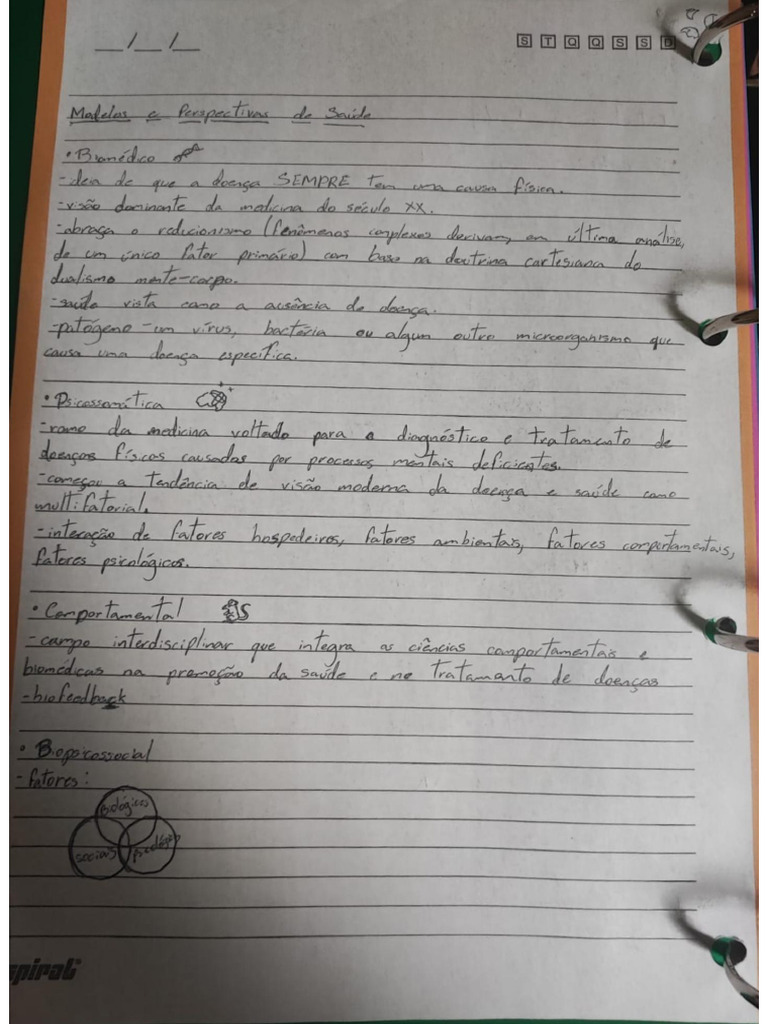 __/__/__
S T Q Q S S D
Modelos e Perspectivas de Saúde
• Biomédico
-ideia de que a doença SEMPRE tem uma causa física.
-visão dominante da medicina do século XX.
-abraça o reducionismo (fenômenos complexos derivam, em última análise,
de um único fator primário) com base na doutrina cartesiana do
dualismo mente-corpo.
-saúde vista como a ausência de doença.
-patógeno - um vírus, bactéria ou algum outro microorganismo que
causa uma doença específica.
• Psicossomática
-ramo da medicina voltado para o diagnóstico e tratamento de
doenças físicas causadas por processos mentais deficientes.
-começou a tendência de visão moderna da doença e saúde como
multifatorial.
-interação de fatores hospedeiros, fatores ambientais, fatores comportamentais,
fatores psicológicos.
• Comportamental
-campo interdisciplinar que integra as ciências comportamentais e
biomédicas na promoção da saúde e no tratamento de doenças
-biofeedback
• Biopsicossocial
-fatores:
biológicos
sociais psicológic
spiral®